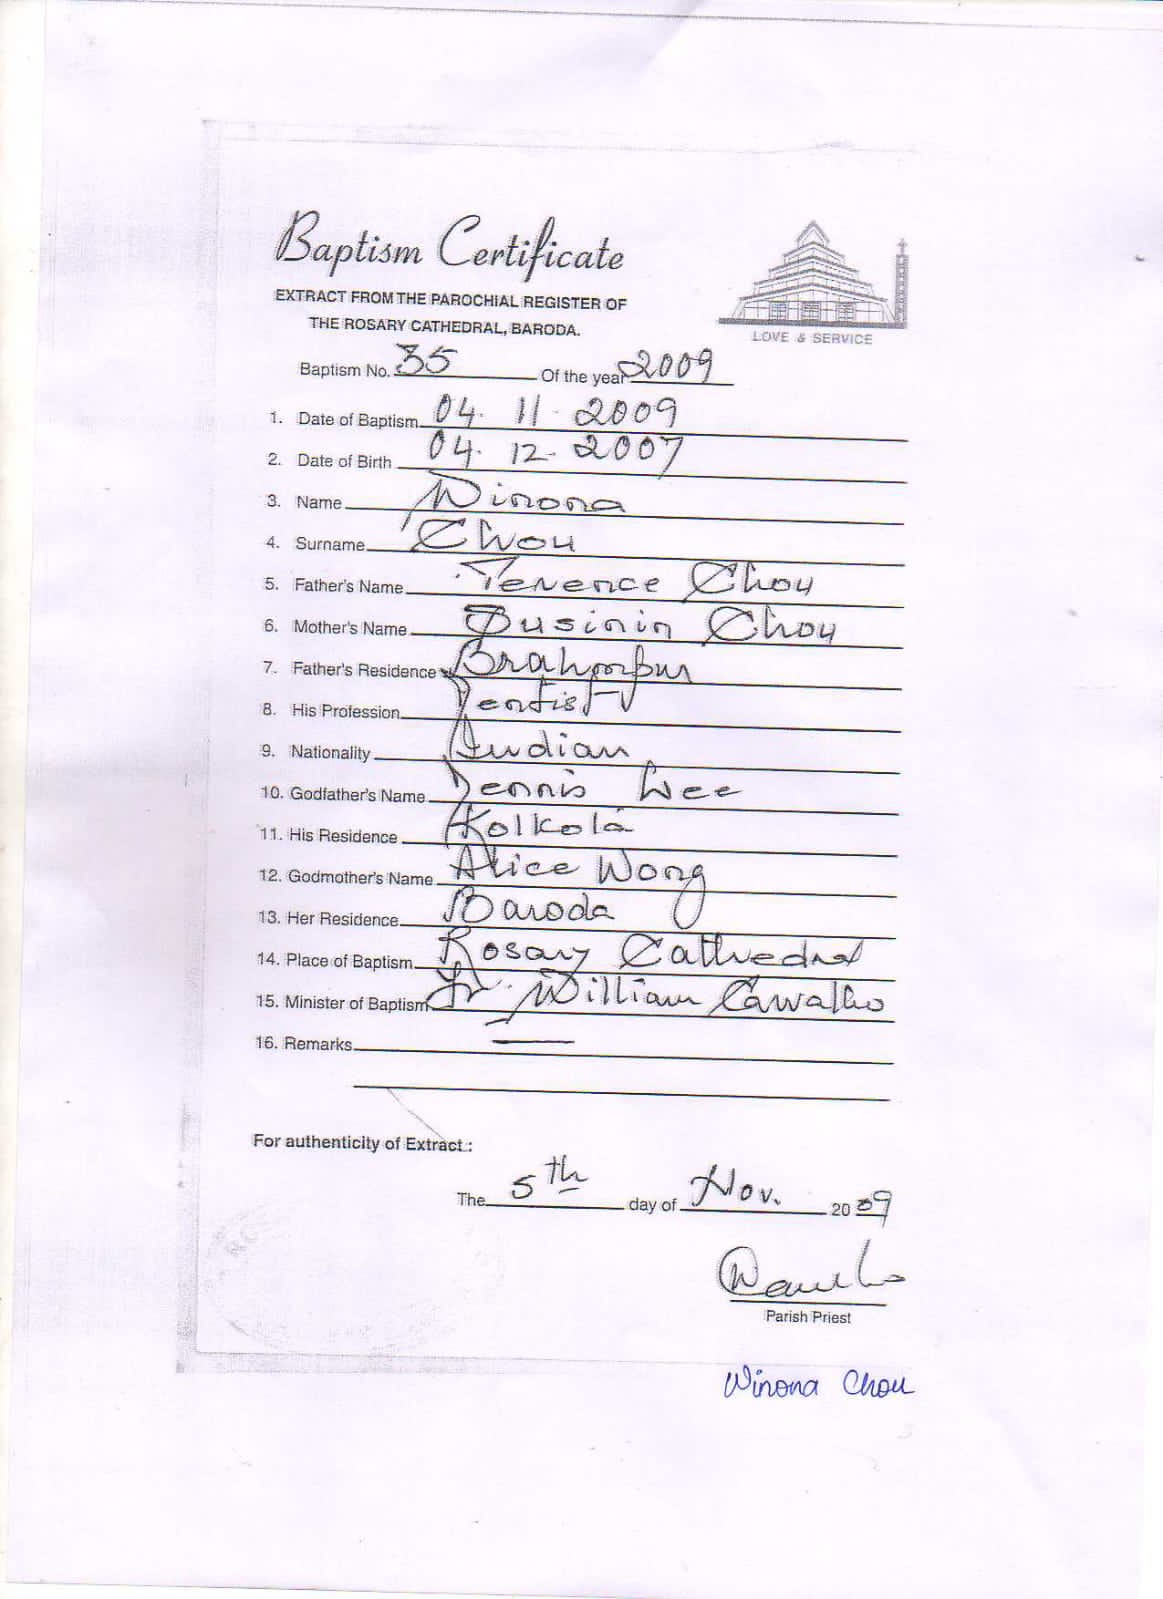 Baptism Certificate
EXTRACT FROM THE PAROCHIAL REGISTER OF
THE ROSARY CATHEDRAL, BARODA.
LOVE & SERVICE
Baptism No. 35 Of the year 2009
1. Date of Baptism 04. 11. 2009
2. Date of Birth 04. 12. 2007
3. Name Winona
4. Surname Chou
5. Father's Name Terence Chou
6. Mother's Name Businin Chou
7. Father's Residence Brahmpur
8. His Profession Dentist
9. Nationality Indian
10. Godfather's Name Dennis Lee
11. His Residence Kolkota
12. Godmother's Name Alice Wong
13. Her Residence Baroda
14. Place of Baptism Rosary Cathedral
15. Minister of Baptism Fr. William Carvalho
16. Remarks —
For authenticity of Extract :
The 5th day of Nov. 2009
Parish Priest
Winona Chou